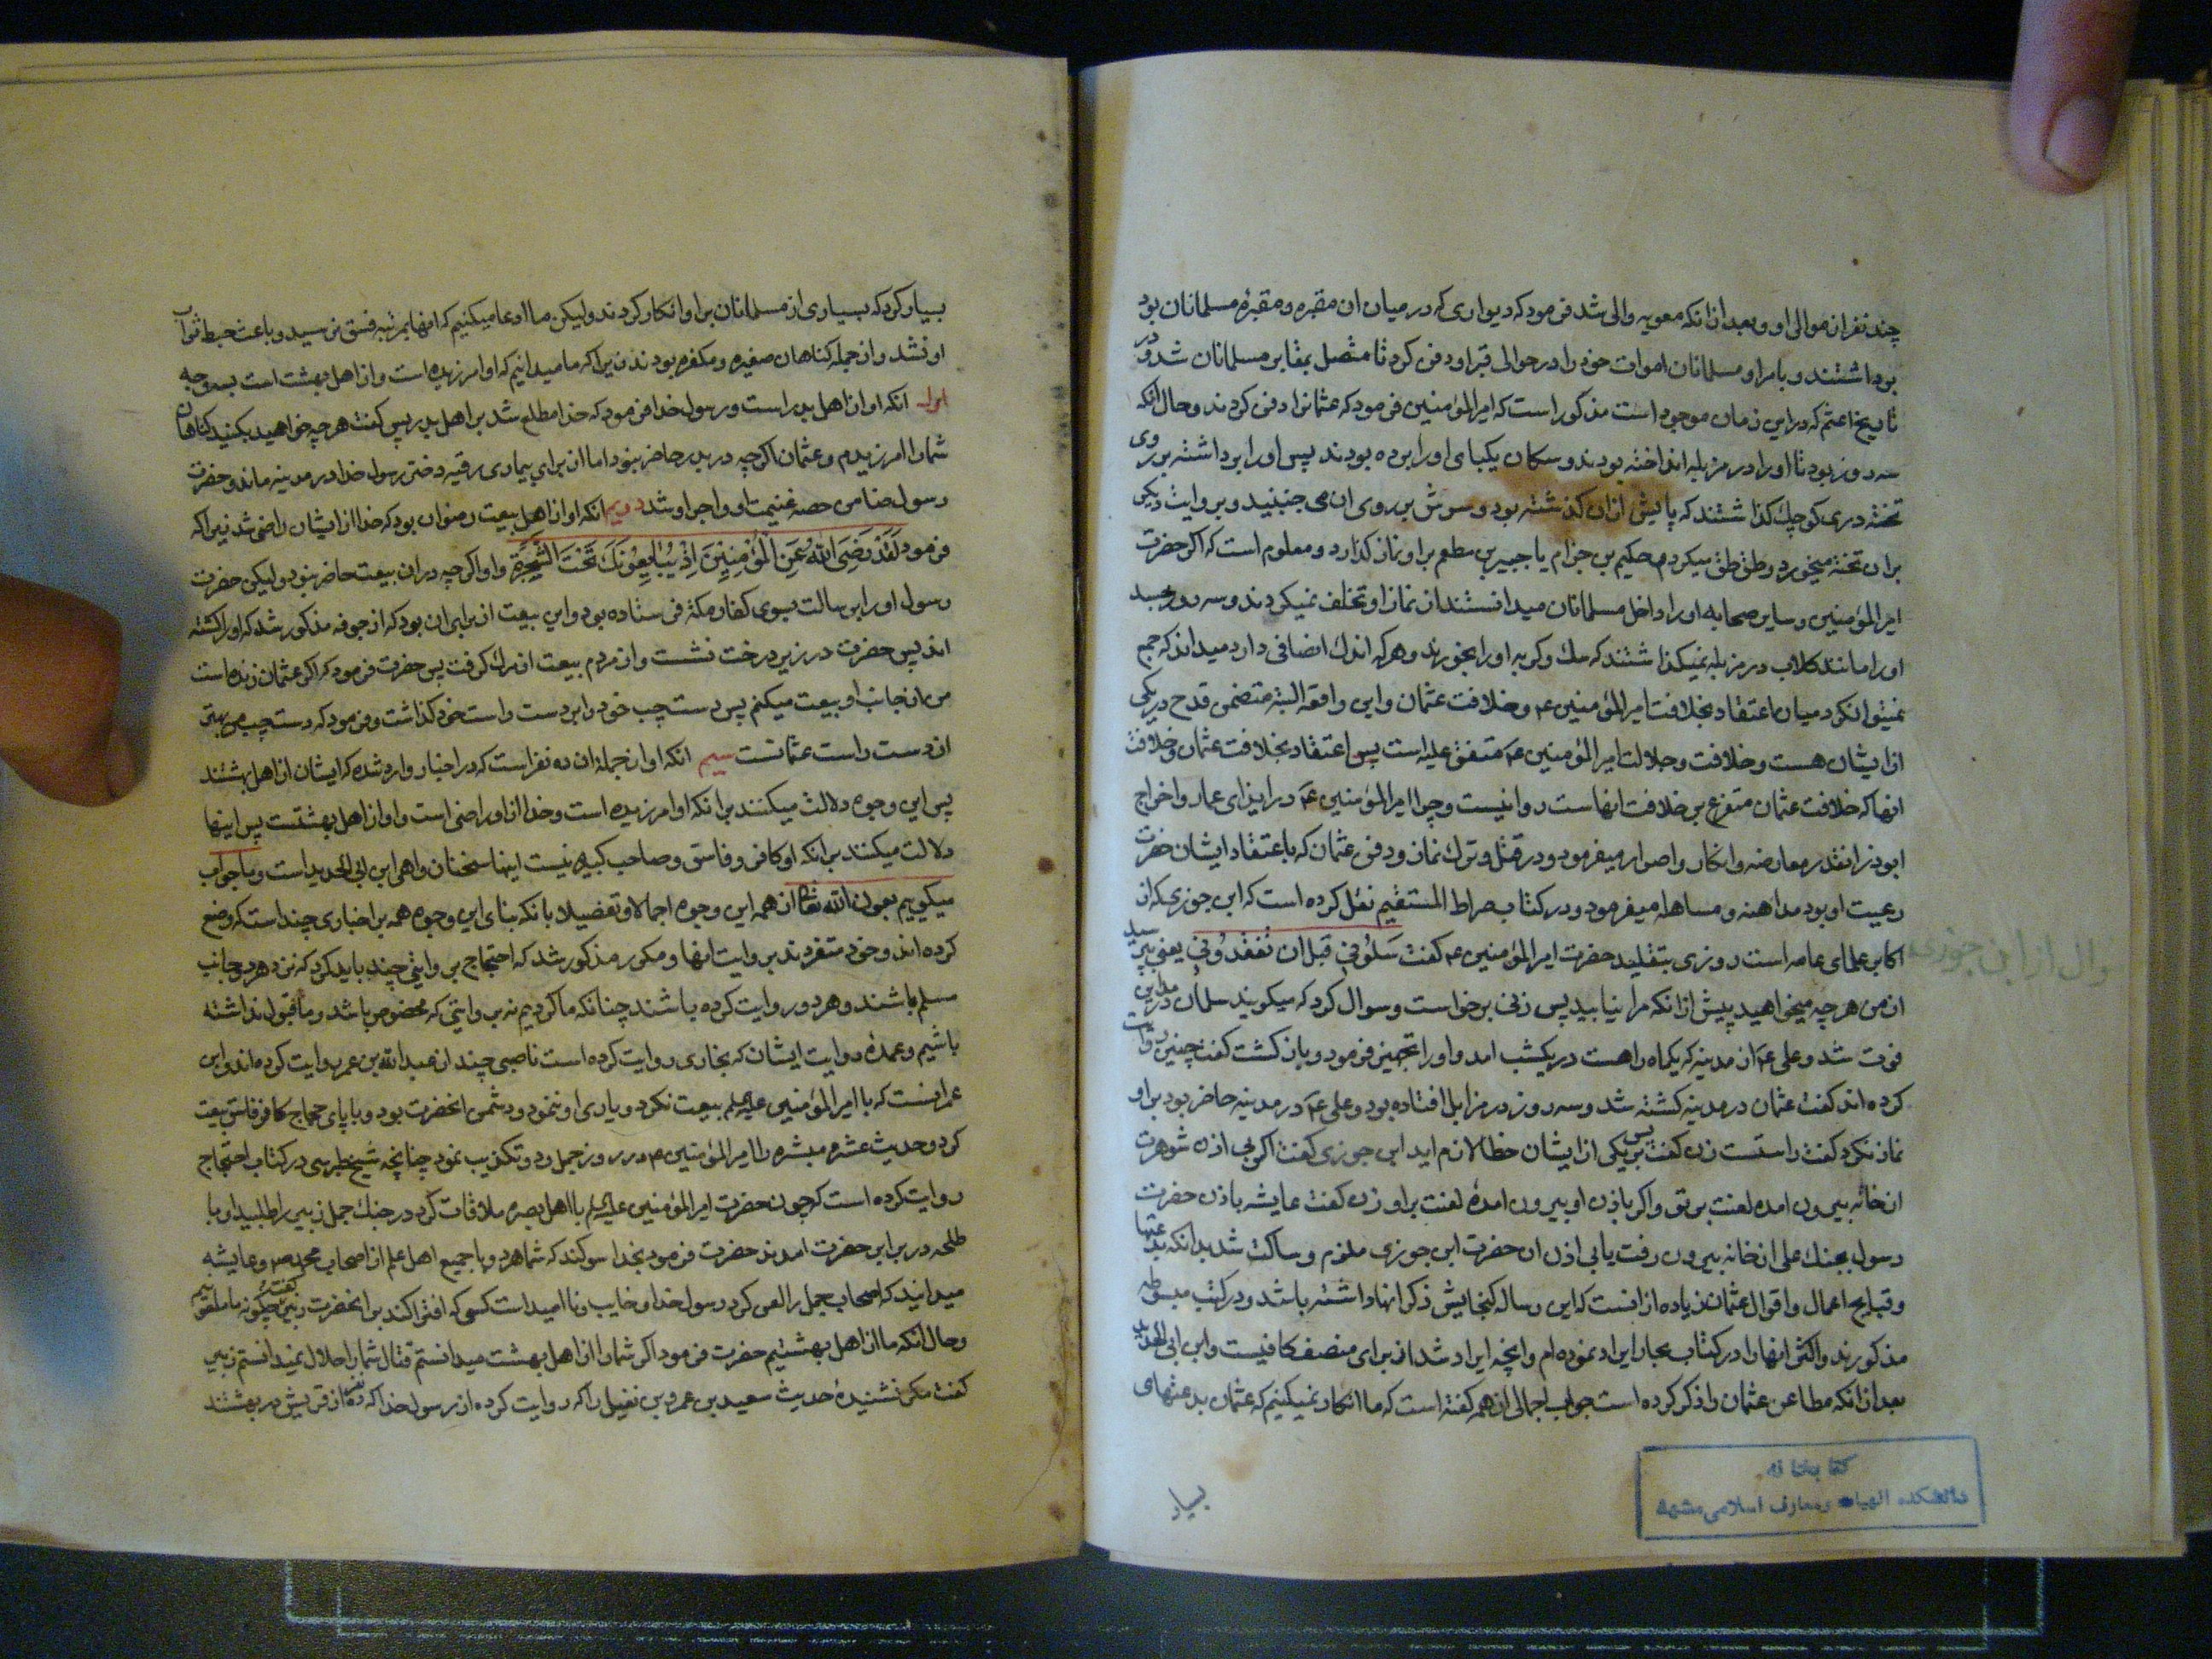 چند نفر از موالی او و بعد از انکه معویه والی شد فرمود که دیواری که در میان ان مقبره و مقبرهٔ مسلمانان بود
برداشتند و بامر او مسلمانان اموات خود را در حوالی قبر او دفن کردند تا متصل بمقابر مسلمانان شد و در
تاریخ اعثم که در این زمان موجود است مذکور است که امیر المؤمنین فرمود که عثمانرا دفن کردند و حال انکه
سه روز بود تا او را در مزبله انداخته بودند و سکان یکپای او را برده بودند پس او را برداشته بر روی
تخته دری کوچک کذاشتند که پایش ازان کذشته بود و سرش بر روی ان می جنبید و بروایت دیکر
بران تخته میخورد و طق طق میکرد و حکیم بن حزام یا جبیر بن مطعم بر او نماز کذارد و معلوم است که اکر حضرت
امیر المؤمنین و سایر صحابه او را داخل مسلمانان میدانستند از نماز او تخلف نمیکردند و سه روز جسد
او را مانند کلاب در مزبله نمیکذاشتند که سک و کربه او را بخورند و هر که اندک انصافی دارد میداند که جمع
نمیتوان کرد میان اعتقاد بخلافت امیر المؤمنین ع و خلافت عثمان و این واقعه البته متضمن قدح در یکی
از ایشان هست و خلافت و جلالت امیر المؤمنین ع متفق علیه است پس اعتقاد بخلافت عثمان و خلافت
انها که خلافت عثمان متفرع بر خلافت انهاست روا نیست و چرا امیر المؤمنین ع در ایذای عمار و اخراج
ابوذر انقدر معارضه و انکار و اصرار میفرمود و در قتل و ترک نماز و دفن عثمان که باعتقاد ایشان حضرت
رعیت او بود مداهنه و مساهله میفرمود و در کتاب صراط المستقیم نقل کرده است که ابن جوزی که از
اکابر علمای عامه است روزی بتقلید حضرت امیر المؤمنین ع کفت سَلُونی قَبلَ ان تَفقدُونی یعنی بپرسید
از من هر چه میخواهید پیش از انکه مرا نیابید پس زنی برخواست و سوال کرد که میکویند سلمان در مداین
فوت شد و علی ع از مدینه که یکماه راهست در یکشب امد و او را تجهیز فرمود و باز کشت کفت چنین روایت
کرده اند کفت عثمان در مدینه کشته شد و سه روز در مزابل افتاده بود و علی ع در مدینه حاضر بود بر او
نماز نکرد کفت راستست زن کفت پس بر یکی از ایشان خطا لازم اید ابن جوزی کفت اکر بی اذن شوهرت
از خانه بیرون امدهٔ لعنت بر تو و اکر باذن او بیرون امدهٔ لعنت بر او زن کفت عایشه باذن حضرت
رسول بجنک علی از خانه بیرون رفت یا بی اذن ان حضرت ابن جوزی ملزم و ساکت شد بدانکه بدعتها
و قبایح اعمال و اقوال عثمان زیاده از انست که این رساله کنجایش ذکر انها داشته باشد و در کتب مبسوطه
مذکورند و اکثر انها را در کتاب بحار ایراد نموده ام و انچه ایراد شد از برای منصف کافیست و ابن ابی الحدید
بعد از انکه مطاعن عثمان را ذکر کرده است جواب اجمالی از همه کفته است که ما انکار نمیکنیم که عثمان بدعتهای
بسیار
وال از ابن جوزی
کتابخانه
دانشکده الهیات و معارف اسلامی مشهد
بسیار کرد که بسیاری از مسلمانان بر او انکار کردند ولیکن ما ادعا میکنیم که انها بمرتبه فسق نرسید و باعث حبط ثواب
او نشد و از جمله کناهان صغیره و مکفره بودند زیرا که ما میدانیم که او امرزیده است و از اهل بهشت است بسه وجه
اول انکه او از اهل بدر است و رسول خدا فرمود که خدا مطلع شد بر اهل بدر پس کفت هر چه خواهید بکنید کناهان
شما را امرزیدم و عثمان اکر چه در بدر حاضر نبود اما از برای بیماری رقیه دختر رسول خدا در مدینه ماند و حضرت
رسول ضامن حصه غنیمت او و اجر او شد دویم انکه او از اهل بیعت رضوان بود که خدا از ایشان راضی شد زیرا که
فرمود لَقَدْ رَضِیَ اللهُ عَنِ الْمُؤْمِنِینَ اِذْ یُبٰایِعُونَکَ تَحْتَ الشَّجَرَةِ و او اکر چه در ان بیعت حاضر نبود ولیکن حضرت
رسول او را برسالت بسوی کفار مکه فرستاده بود و این بیعت از برای ان بود که ارجوفه مذکور شد که او را کشته
اند پس حضرت در زیر درخت نشست و از مردم بیعت از مرک کرفت پس حضرت فرمود که اکر عثمان زنده است
من از جانب او بیعت میکنم پس دست چپ خود را بر دست راست خود کذاشت و فرمود که دست چپ من بهتر
از دست راست عثمانست سیم انکه او از جملهٔ ان ده نفر است که در اخبار وارد شده که ایشان از اهل بهشتند
پس این وجوه دلالت میکنند بر انکه او امرزیده است و خدا از او راضی است و او از اهل بهشتست پس اینها
دلالت میکنند بر انکه او کافر و فاسق و صاحب کبیره نیست اینها سخنان واهی ابن ابی الحدید است و ما جواب
میکوییم بعون الله تعالی از همه این وجوه اجمالا و تفصیلا بانکه بنای این وجوه همه بر اخباری چند است که وضع
کرده اند و خود متفردند بروایت انها و مکرر مذکور شد که احتجاج بروایتی چند باید کرد که نزد هر دو جانب
مسلم باشند و هر دو روایت کرده باشند چنانکه ما کردیم نه بروایتی که مخصوص باشد و ما قبول نداشته
باشیم و عمدهٔ روایت ایشان که بخاری روایت کرده است ناصبی چند از عبد الله بن عمر روایت کرده اند و ابن
عمر انست که با امیر المؤمنین علیه السلم بیعت نکرد و یاری او ننمود و دشمن انحضرت بود و با پای حجاج کافر فاسق بیعت
کرد و حدیث عشره مبشره را امیر المؤمنین ع در روز جمل رد و تکذیب نمود چنانچه شیخ طبرسی در کتاب احتجاج
روایت کرده است که چون حضرت امیر المؤمنین علیه السلم با اهل بصره ملاقات کرد در جنک جمل زبیر را طلبید او با
طلحه در برابر حضرت امدند حضرت فرمود بخدا سوکند که شما هر دو با جمیع اهل علم از اصحاب محمد ص و عایشه
میدانید که اصحاب جمل را لعن کرد رسول خدا و خایب و ناامید است کسی که افترا کند بر انحضرت زبیر کفت چکونه ما ملعونیم
و حال انکه ما از اهل بهشتیم حضرت فرمود اکر شما را از اهل بهشت میدانستم قتال شما را حلال نمیدانستم زبیر
کفت مکر نشنیدهٔ حدیث سعید بن عمرو بن نفیل را که روایت کرده از رسول خدا که ده نفر از قریش در بهشتند